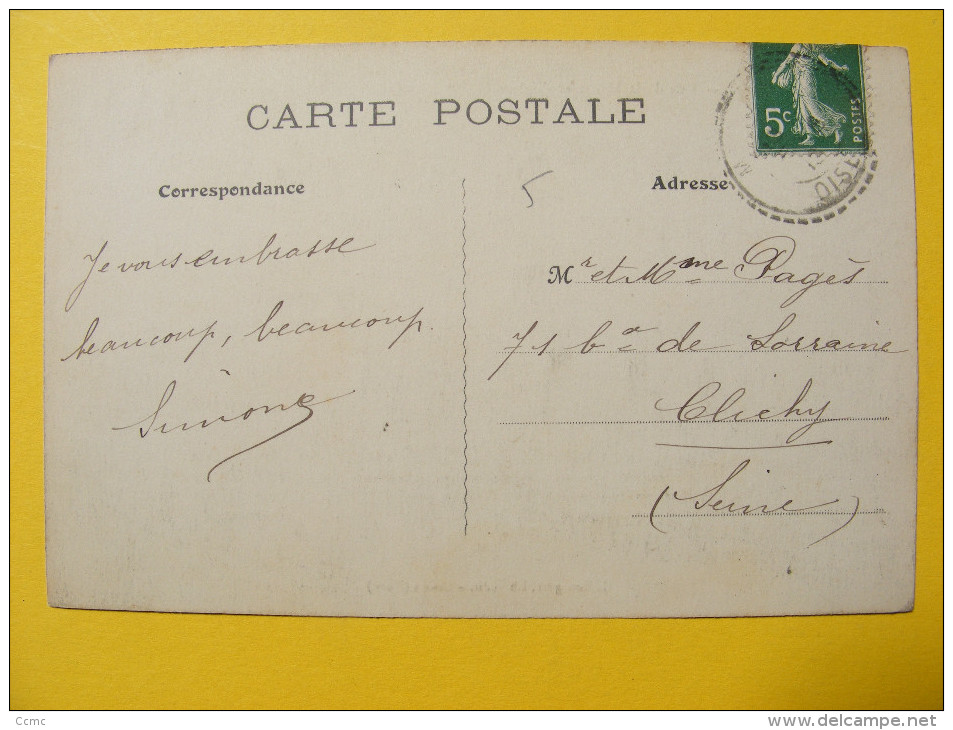 CARTE POSTALE
5c
POSTES
OISE
Correspondance
5
Adresse
Je vous embrasse
beaucoup, beaucoup.
Simone
Mr et Mme Pagès
71 bd de Lorraine
Clichy
(Seine)
Ccmc
www.delcampe.net